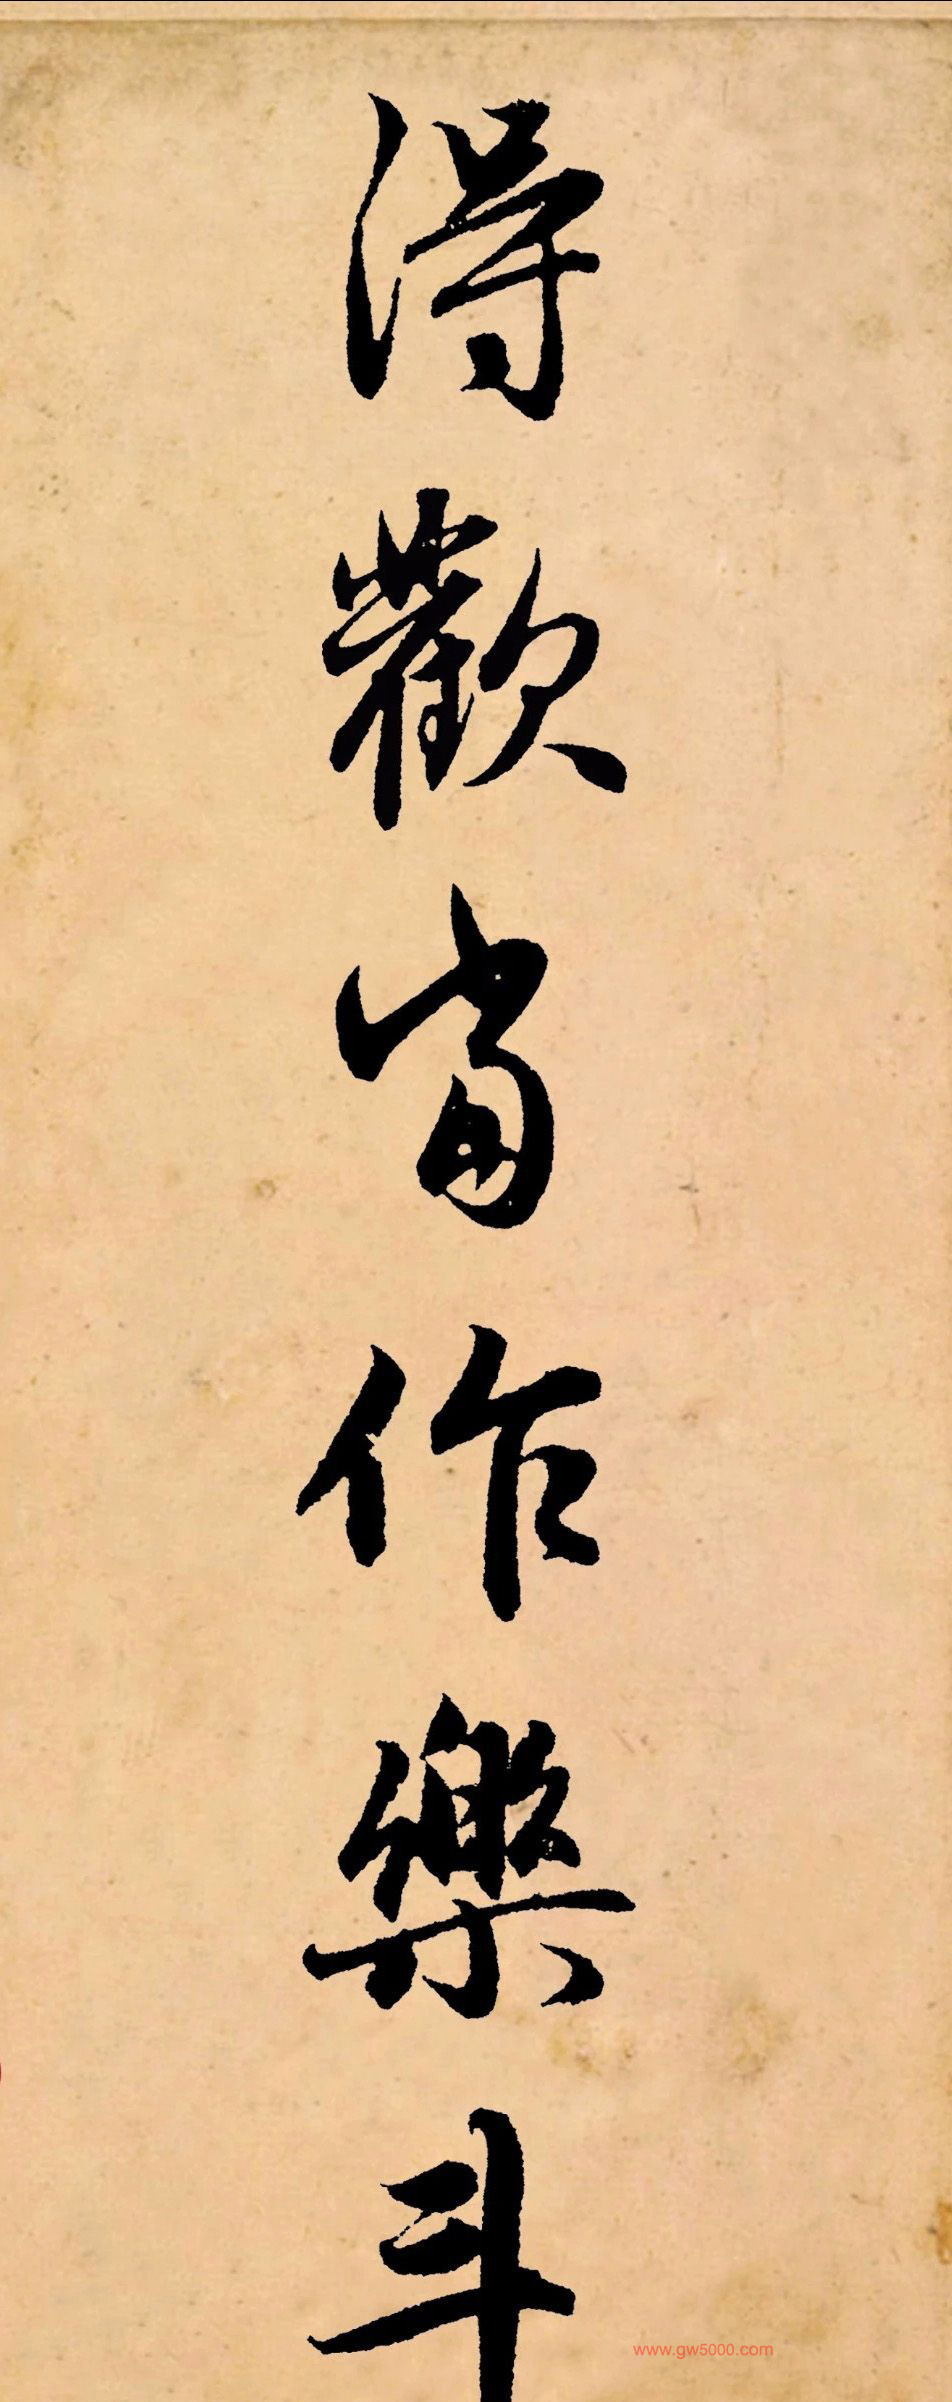 得歡當作樂斗
www.gw5000.com